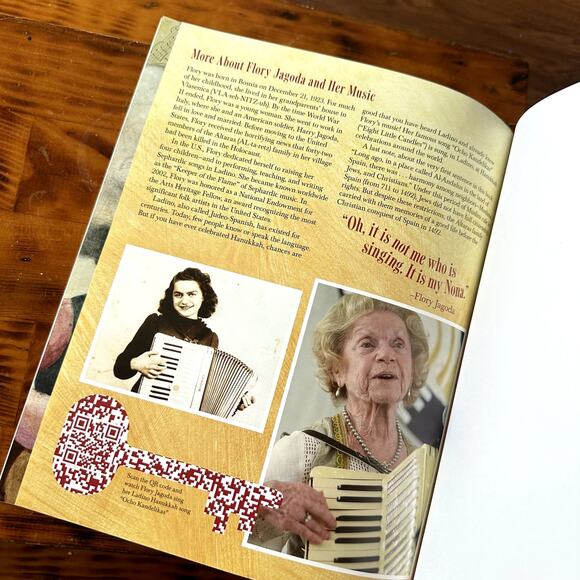 More About Flory Jagoda and Her Music
Flory was born in Bosnia on December 21, 1923. For much
of her childhood, she lived in her grandparents' house in
Vlasenica (VLA-seh-NITZ-ah). By the time World War
II ended, Flory was a young woman. She went to work in
Italy, where she and an American soldier, Harry Jagoda,
fell in love and married. Before moving to the United
States, Flory received the horrifying news that forty-two
members of the Altaras (AL-ta-rets) family in her village
had been killed in the Holocaust.
In the U.S., Flory dedicated herself to raising her
four children—and to performing, teaching, and writing
Sephardic songs in Ladino. She became known worldwide
as the "Keeper of the Flame" of Sephardic music. In
2002, Flory was honored as a National Endowment for
the Arts Heritage Fellow, an award recognizing the most
significant folk artists in the United States.
Ladino, also called Judeo-Spanish, has existed for
centuries. Today, few people know or speak the language.
But if you have ever celebrated Hanukkah, chances are
good that you have heard Ladino and already know
Flory's music! Her famous song "Ocho Kandelikas"
("Eight Little Candles") is sung in Ladino at Hanukkah
celebrations around the world.
A last note, about the very first sentence in the book:
"Long ago, in a place called Al-Andalus in the land of
Spain, there was
Jews, and Christians." Under this period of Islamic
Spain (from 711 to 1492), Jews did not have full
rights. But despite these restrictions, the Altaras family
carried with them memories of a good life before the
Christian conquest of Spain in 1492.
"Oh, it is not me who is
singing. It is my Nona."
–Flory Jagoda
Scan the QR code and
watch Flory Jagoda sing
her Ladino Hanukkah song
"Ocho Kandelikas"